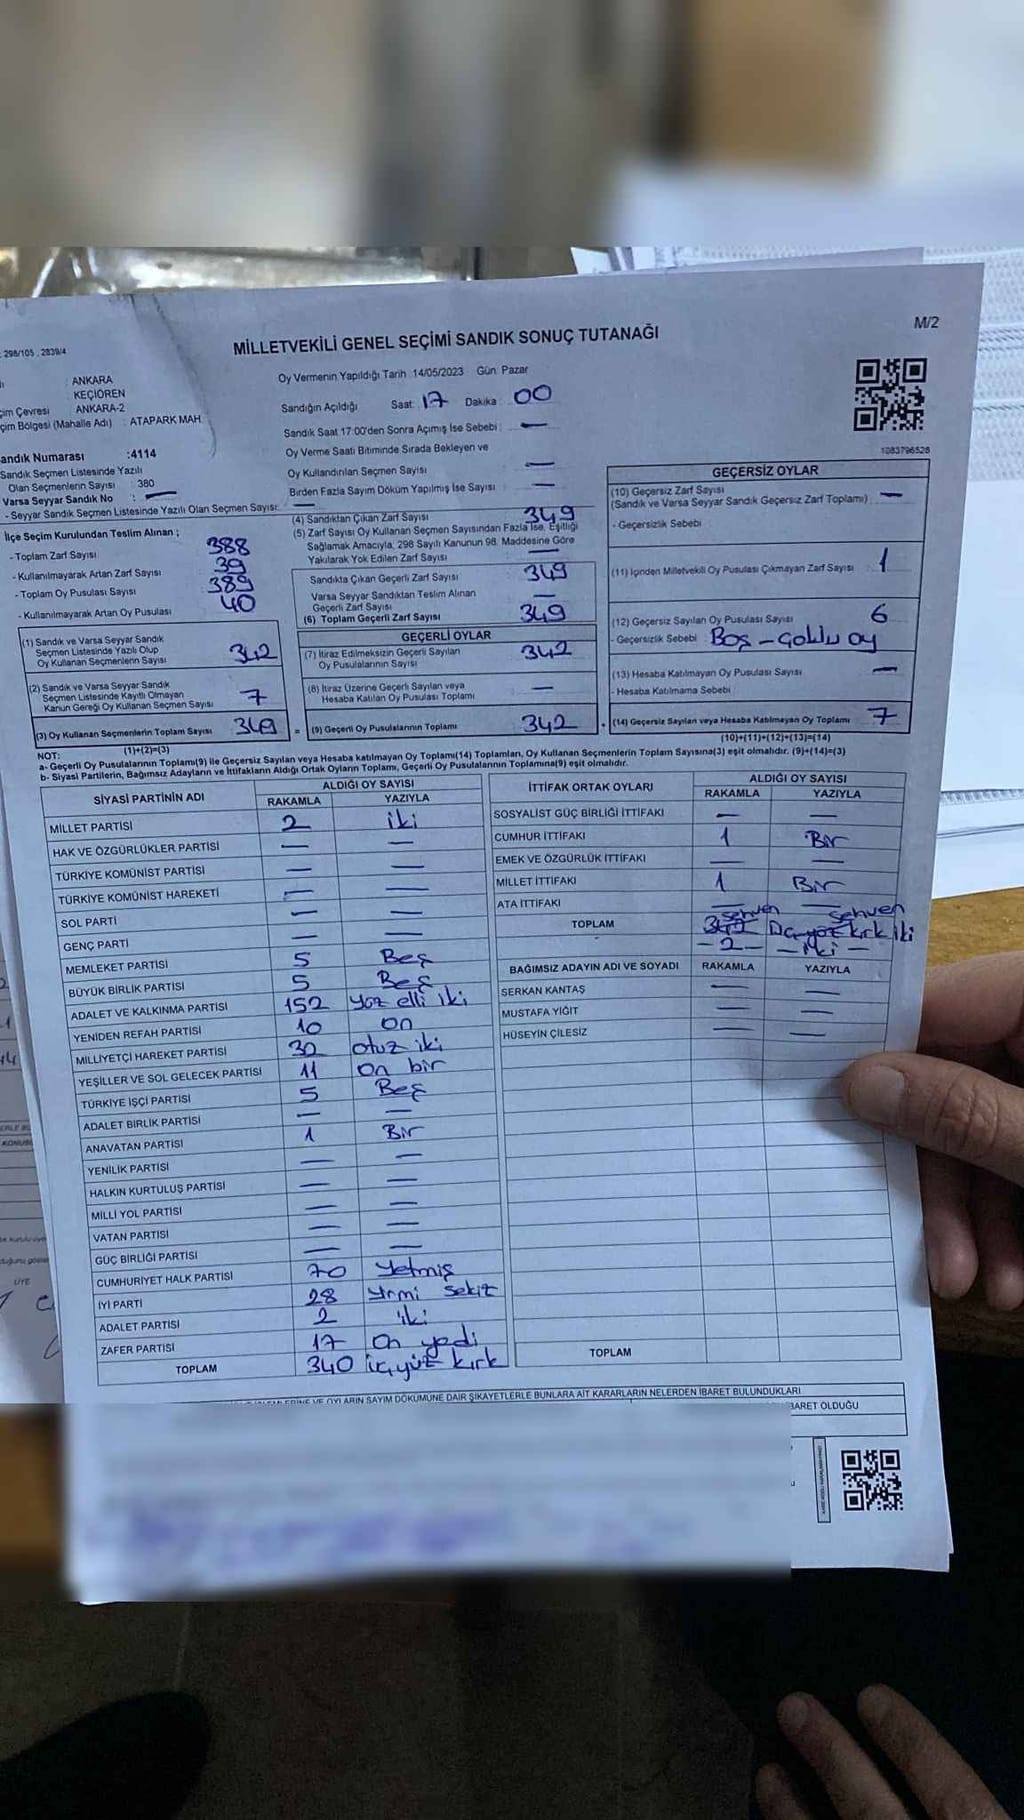 M/2
MİLLETVEKİLİ GENEL SEÇİMİ SANDIK SONUÇ TUTANAĞI
: 298/105 , 2839/4
: ANKARA
KEÇİÖREN
çim Çevresi : ANKARA-2
çim Bölgesi (Mahalle Adı) : ATAPARK MAH.
andık Numarası :4114
Sandık Seçmen Listesinde Yazılı
Olan Seçmenlerin Sayısı : 380
Varsa Seyyar Sandık No : —
- Seyyar Sandık Seçmen Listesinde Yazılı Olan Seçmen Sayısı: —
Oy Vermenin Yapıldığı Tarih :14/05/2023 Gün: Pazar
Sandığın Açıldığı Saat: 17 Dakika : 00
Sandık Saat 17:00'den Sonra Açımış İse Sebebi : —
Oy Verme Saati Bitiminde Sırada Bekleyen ve
Oy Kullandırılan Seçmen Sayısı —
Birden Fazla Sayım Döküm Yapılmış İse Sayısı : —
1083796526
İlçe Seçim Kurulundan Teslim Alınan ;
- Toplam Zarf Sayısı 388
- Kullanılmayarak Artan Zarf Sayısı 39
- Toplam Oy Pusulası Sayısı 389
- Kullanılmayarak Artan Oy Pusulası 40
(1) Sandık ve Varsa Seyyar Sandık
Seçmen Listesinde Yazılı Olup
Oy Kullanan Seçmenlerin Sayısı 342
(2) Sandık ve Varsa Seyyar Sandık
Seçmen Listesinde Kayıtlı Olmayan
Kanun Gereği Oy Kullanan Seçmen Sayısı 7
(3) Oy Kullanan Seçmenlerin Toplam Sayısı 349 =
(1)+(2)=(3)
(4) Sandıktan Çıkan Zarf Sayısı 349
(5) Zarf Sayısı Oy Kullanan Seçmen Sayısından Fazla İse, Eşitliği
Sağlamak Amacıyla, 298 Sayılı Kanunun 98. Maddesine Göre
Yakılarak Yok Edilen Zarf Sayısı —
Sandıkta Çıkan Geçerli Zarf Sayısı 349
Varsa Seyyar Sandıktan Teslim Alınan
Geçerli Zarf Sayısı —
(6) Toplam Geçerli Zarf Sayısı 349
GEÇERLİ OYLAR
(7) İtiraz Edilmeksizin Geçerli Sayılan
Oy Pusulalarının Sayısı 342
(8) İtiraz Üzerine Geçerli Sayılan veya
Hesaba Katılan Oy Pusulası Toplamı —
(9) Geçerli Oy Pusulalarının Toplamı 342 +
GEÇERSİZ OYLAR
(10) Geçersiz Zarf Sayısı
(Sandık ve Varsa Seyyar Sandık Geçersiz Zarf Toplamı) —
- Geçersizlik Sebebi
(11) İçinden Milletvekili Oy Pusulası Çıkmayan Zarf Sayısı 1
(12) Geçersiz Sayılan Oy Pusulası Sayısı 6
- Geçersizlik Sebebi Boş -
(13) Hesaba Katılmayan Oy Pusulası Sayısı —
- Hesaba Katılmama Sebebi
(14) Geçersiz Sayılan veya Hesaba Katılmayan Oy Toplamı 7
(10)+(11)+(12)+(13)=(14)
NOT:
a- Geçerli Oy Pusulalarının Toplamı(9) ile Geçersiz Sayılan veya Hesaba katılmayan Oy Toplamı(14) Toplamları, Oy Kullanan Seçmenlerin Toplam Sayısına(3) eşit olmalıdır. (9)+(14)=(3)
b- Siyasi Partilerin, Bağımsız Adayların ve İttifakların Aldığı Ortak Oyların Toplamı, Geçerli Oy Pusulalarının Toplamına(9) eşit olmalıdır.
SİYASİ PARTİNİN ADI ALDIĞI OY SAYISI
RAKAMLA YAZIYLA
MİLLET PARTİSİ 2 iki
HAK VE ÖZGÜRLÜKLER PARTİSİ — —
TÜRKİYE KOMÜNİST PARTİSİ — —
TÜRKİYE KOMÜNİST HAREKETİ — —
SOL PARTİ — —
GENÇ PARTİ — —
MEMLEKET PARTİSİ 5 Beş
BÜYÜK BİRLİK PARTİSİ 5 Beş
ADALET VE KALKINMA PARTİSİ 152 Yüz elli iki
YENİDEN REFAH PARTİSİ 10 on
MİLLİYETÇİ HAREKET PARTİSİ 32 otuz iki
YEŞİLLER VE SOL GELECEK PARTİSİ 11 on bir
TÜRKİYE İŞÇİ PARTİSİ 5 Beş
ADALET BİRLİK PARTİSİ — —
ANAVATAN PARTİSİ 1 Bir
YENİLİK PARTİSİ — —
HALKIN KURTULUŞ PARTİSİ — —
MİLLİ YOL PARTİSİ — —
VATAN PARTİSİ — —
GÜÇ BİRLİĞİ PARTİSİ — —
CUMHURİYET HALK PARTİSİ 70 Yetmiş
İYİ PARTİ 28 Yirmi sekiz
ADALET PARTİSİ 2 iki
ZAFER PARTİSİ 17 On yedi
TOPLAM 340 üçyüz kırk
İTTİFAK ORTAK OYLARI ALDIĞI OY SAYISI
RAKAMLA YAZIYLA
SOSYALİST GÜÇ BİRLİĞİ İTTİFAKI — —
CUMHUR İTTİFAKI 1 Bir
EMEK VE ÖZGÜRLÜK İTTİFAKI — —
MİLLET İTTİFAKI 1 Bir
ATA İTTİFAKI — —
sehven sehven
TOPLAM 342 kırk iki
- 2 - - iki -
BAĞIMSIZ ADAYIN ADI VE SOYADI RAKAMLA YAZIYLA
SERKAN KANTAŞ — —
MUSTAFA YİĞİT — —
HÜSEYİN ÇİLESİZ — —
TOPLAM
OYLARIN SAYIM DÖKÜMÜNE DAİR ŞİKAYETLERLE BUNLARA AİT KARARLARIN NELERDEN İBARET BULUNDUKLARI
BARET OLDUĞU
ÜYE